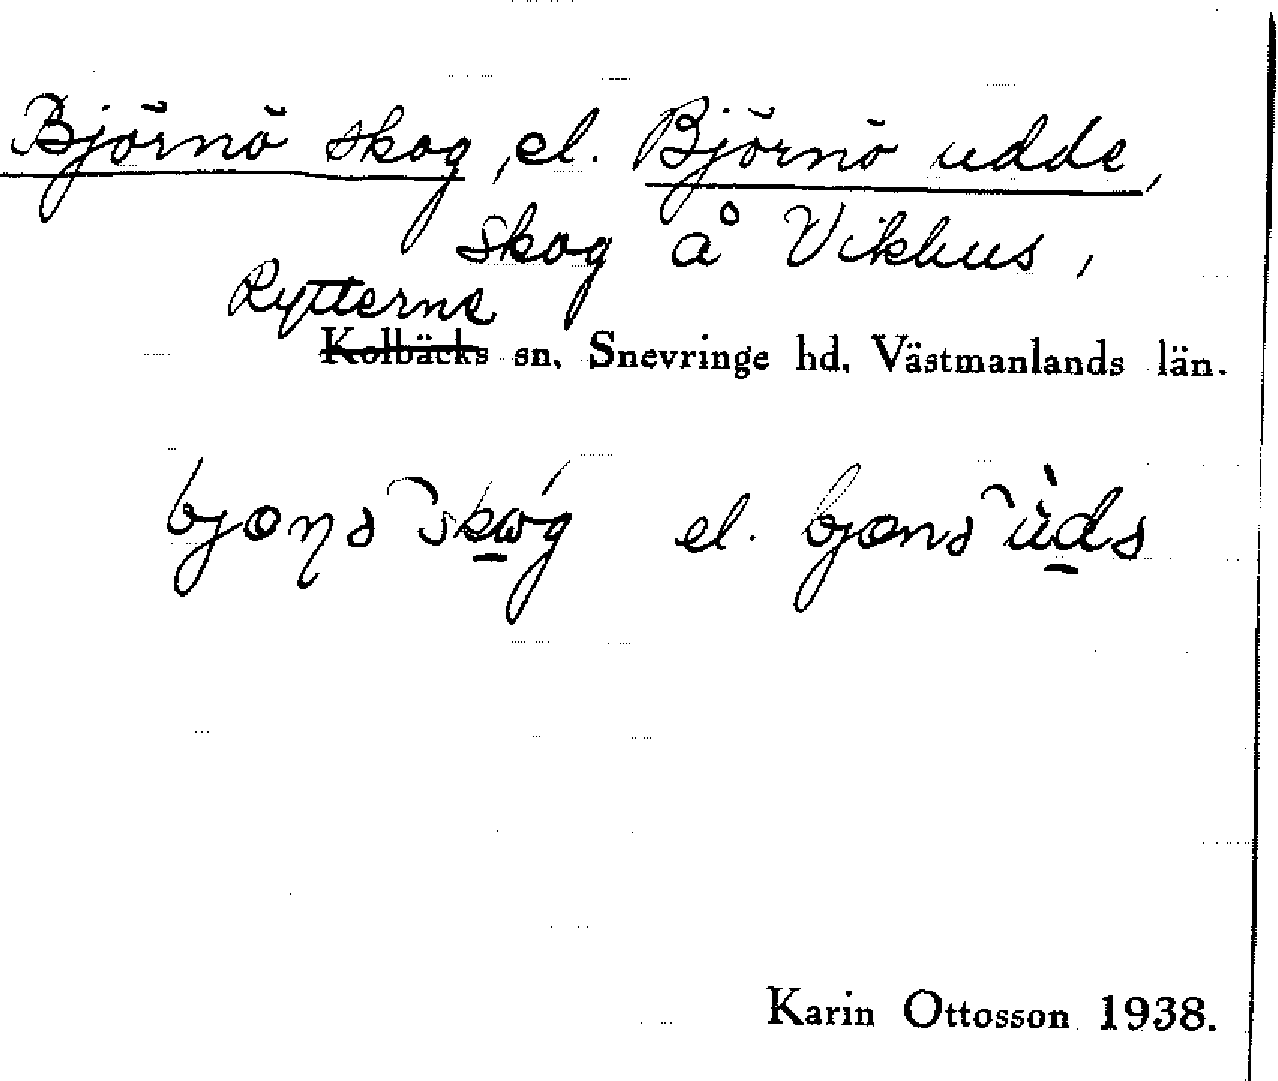 Björnö skog, el. Björnö udde,
skog å Vikhus,
Rytterne
Kolbäcks sn, Snevringe hd, Västmanlands län.
el.
Karin Ottosson 1938.